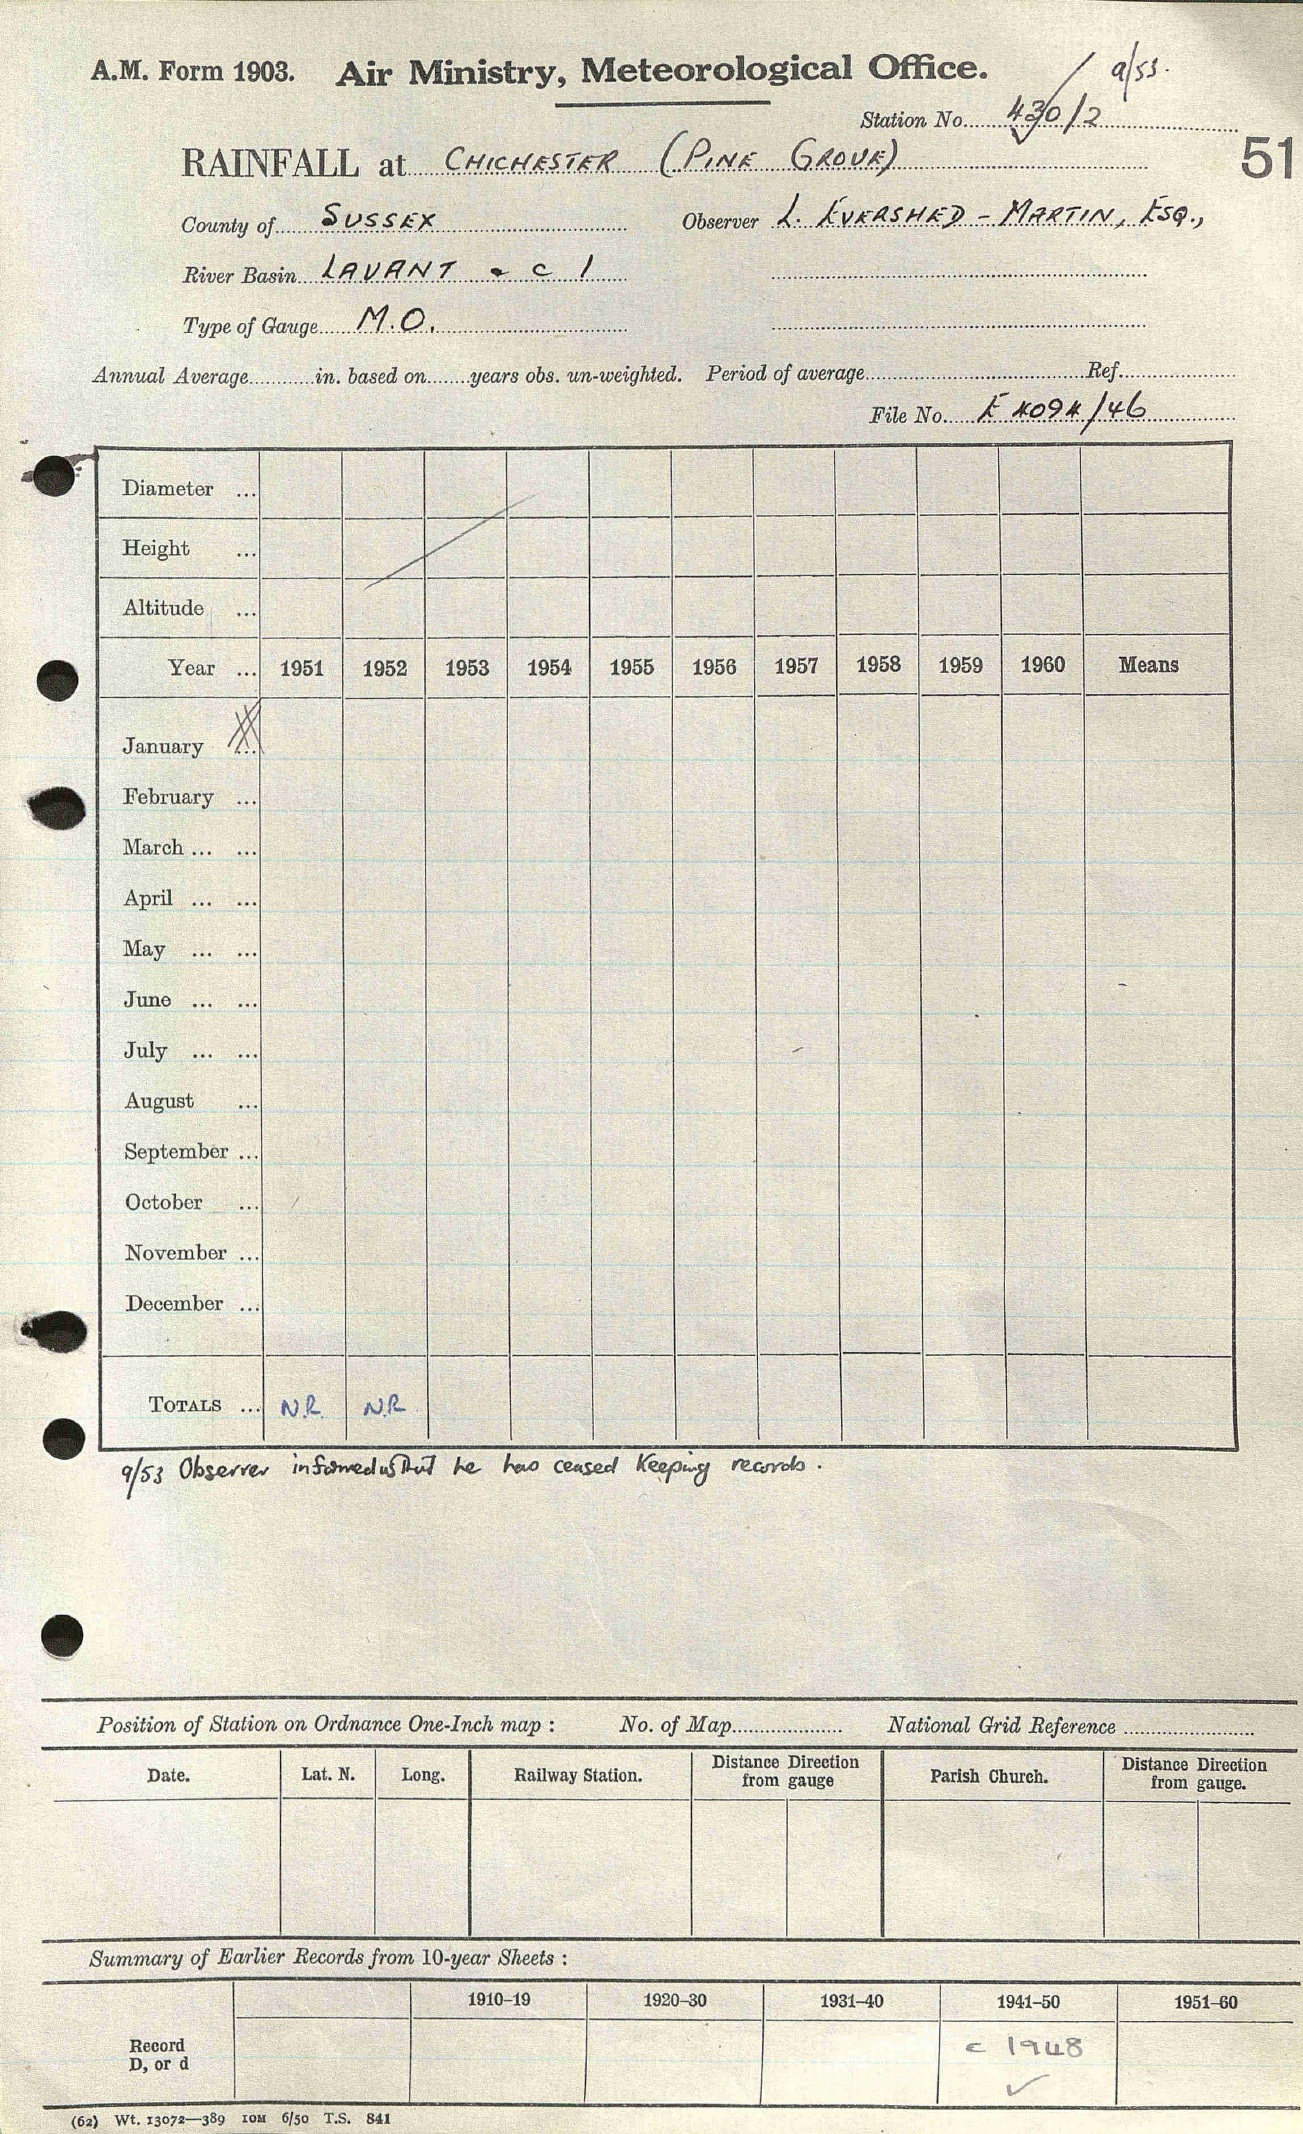 A.M. Form 1903. Air Ministry, Meteorological Office. 9/53.
Station No. 430/2
51
RAINFALL at CHICHESTER (PINE GROVE)
County of SUSSEX Observer L. EVERSHED - MARTIN, ESQ.,
River Basin LAVANT - C 1
Type of Gauge M.O.
Annual Average............in. based on........years obs. un-weighted. Period of average........................................Ref.....................
File No. 46
Diameter ...
Height ...
Altitude ...
Year ... 1951 1952 1953 1954 1955 1956 1957 1958 1959 1960 Means
January ...
February ...
March ... ...
April ... ...
May ... ...
June ... ...
July ... ...
August ...
September ...
October ...
November ...
December ...
TOTALS ... N.R. N.R
9/53 Observer informed us that he has ceased keeping records.
Position of Station on Ordnance One-Inch map : No. of Map..................... National Grid Reference ........................
Date. Lat. N. Long. Railway Station. Distance Direction from gauge Parish Church. Distance Direction from gauge.
Summary of Earlier Records from 10-year Sheets :
1910–19 1920–30 1931–40 1941–50 1951–60
Record
D, or d
c 1948
✓
(62) Wt. 13072—389 10M 6/50 T.S. 841